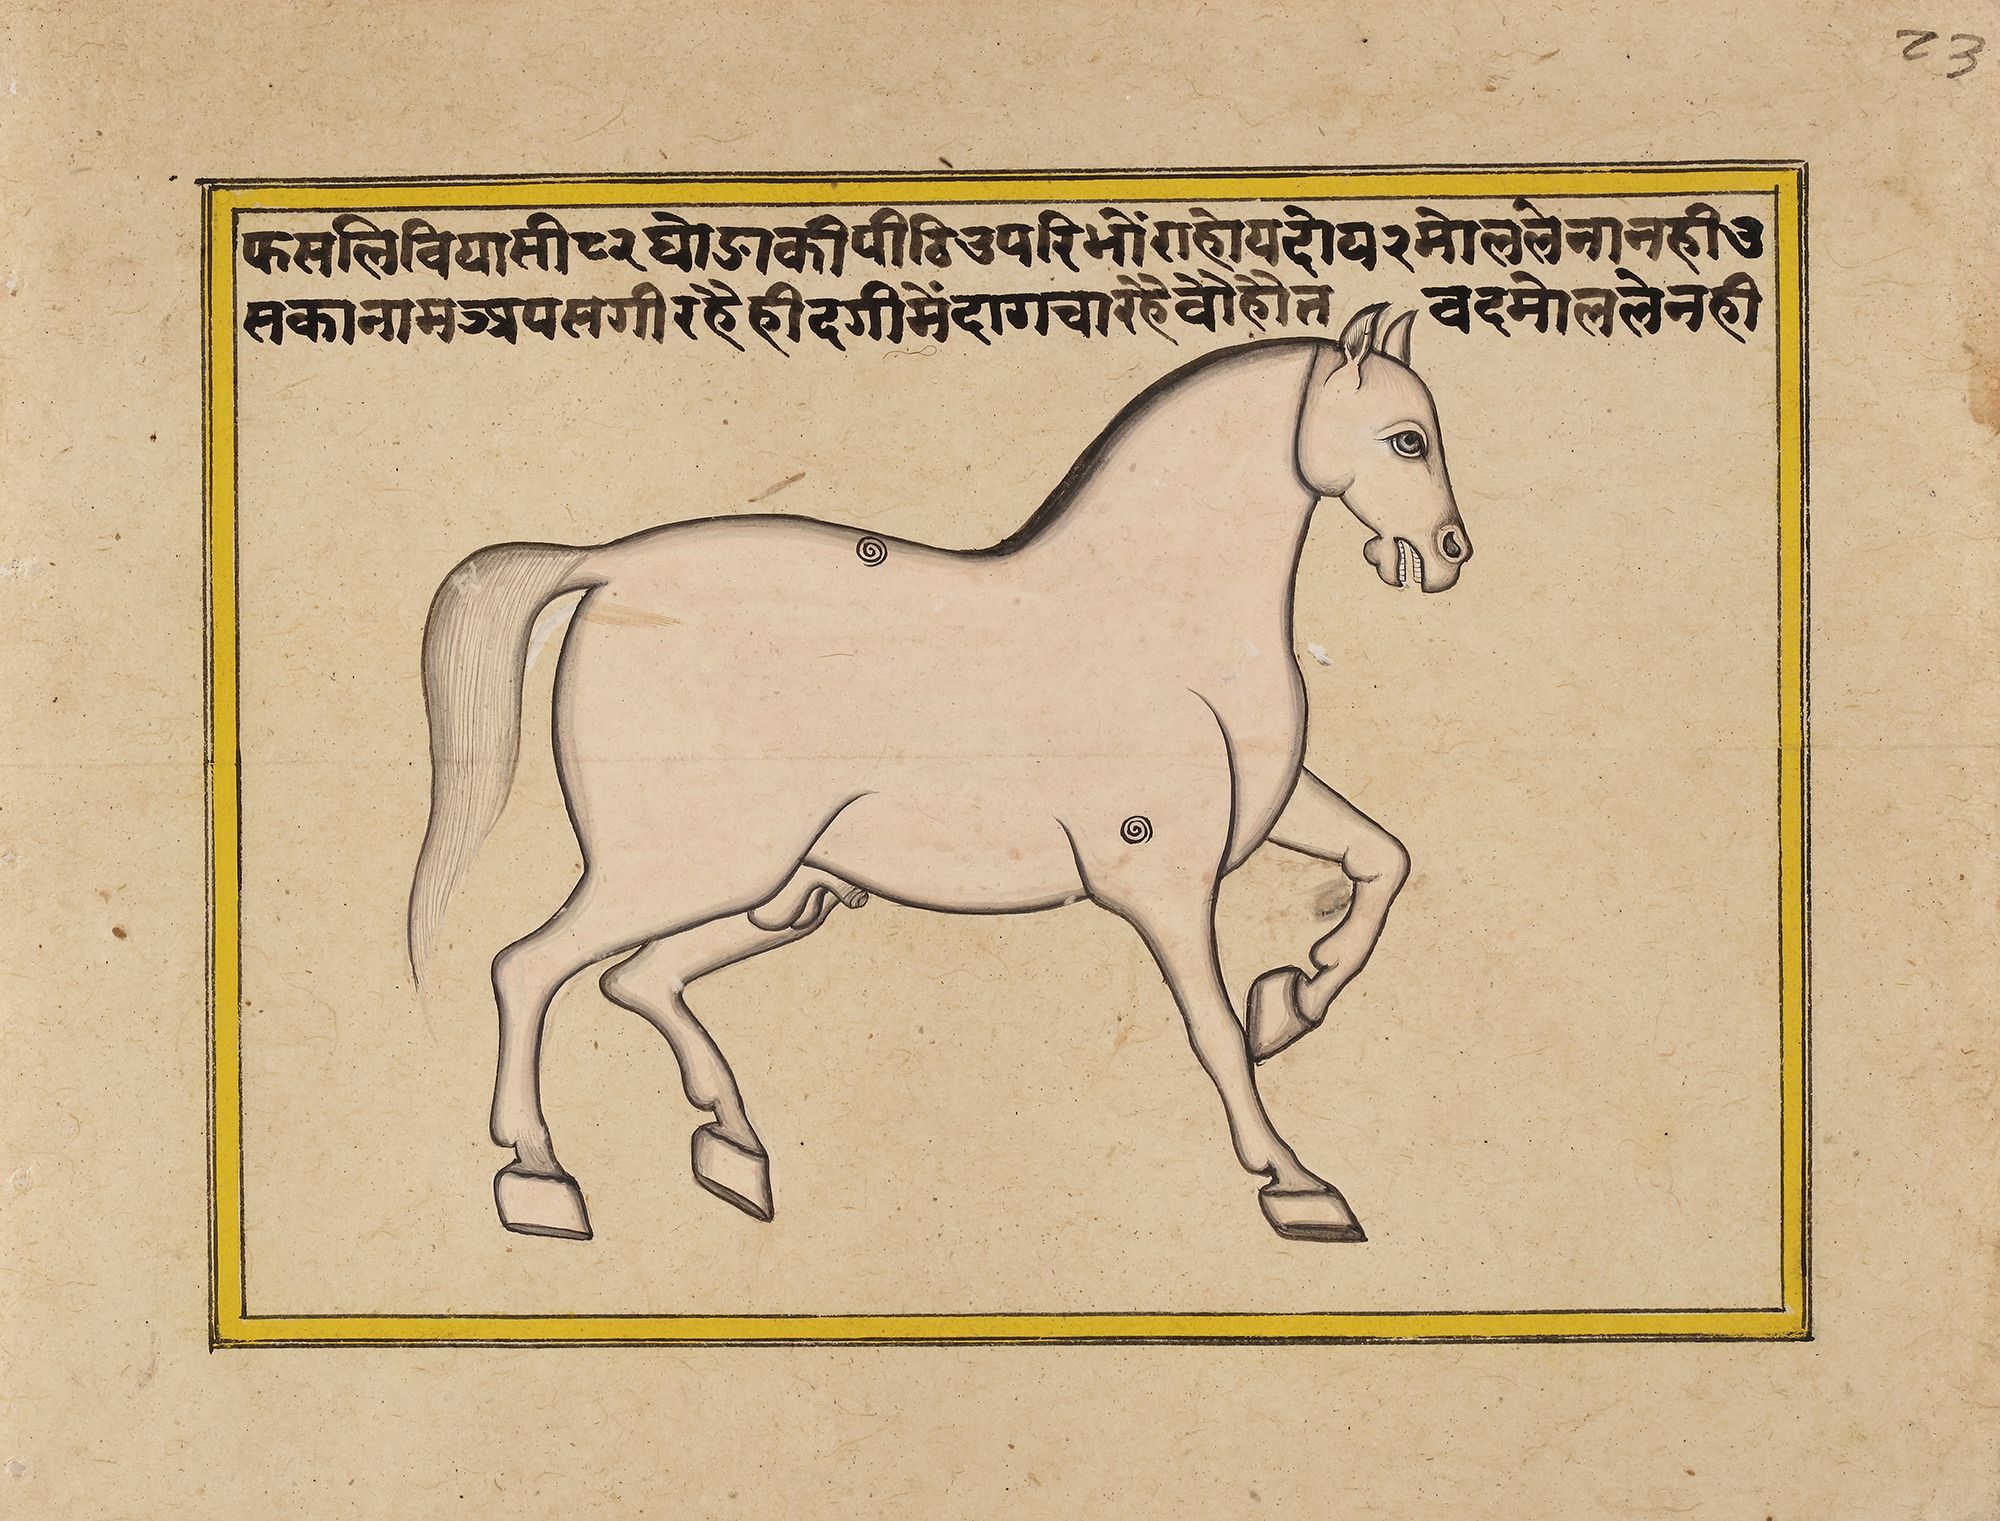 23
फसलिवियासी८२ घोङाकीपीठिउपरिभोंराहोयदोय२मोललेनानहीउ
सकानामअपसगीरहैहीदगीमेंदागचारहैवोहोत वदमोललेनही